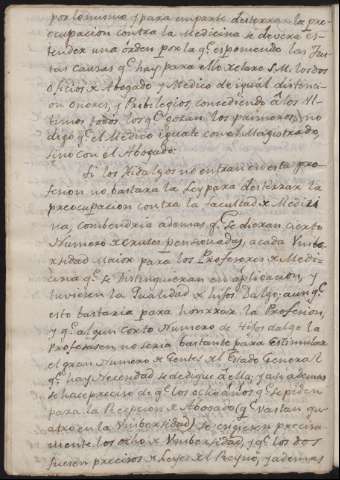 por lo mismo, y para en parte desterrar la pre-
ocupacion contra la Medicina se devera es-
tender una orden por la q.e esponiendo las Jus-
tas causas q.e hay para ello x claxe S.M. los dos
oficios x Abogado y Medico de igual distinc-
ion onores, y Pribilegios, concediendo â los Ul-
timos todos los q.e gozan los primeros; no
digo q.e el Medico iguale con el Magistrado,
sino con el Abogado.
Si los Hidalgos no entran en esta pro-
fesion no bastara la Ley para desterrar la
preocupacion contra la facultad x Medici
na, combendria ademas q.e se dieran cierto
Numero x cruces pensionadas, acada Unibe
rsidad Maior para los Profesores x Medi-
cina q.e se distinguieran en aplicacion, y
tuvieran la Qualidad x hijos dalgo; aunq.e
esto bastaria para honrrar la Profesion,
y q.e algun corto Numero de hijos dalgo la
Profesasen no seria bastante para estimular
el gran Numero x Gentes xl Estado General
q.e hay Necesidad se dedique â ella, y asi ademas
se hace preciso de q.e los ocho años q.e se piden
para la Recepcion x Abogado (q.e bastan qu-
atro en la Unibersidad) se exigieren precisa-
mente los ocho x Unibersidad, y q.e los dos
fuesen precisos x Leyes xl Reyno, y ademas